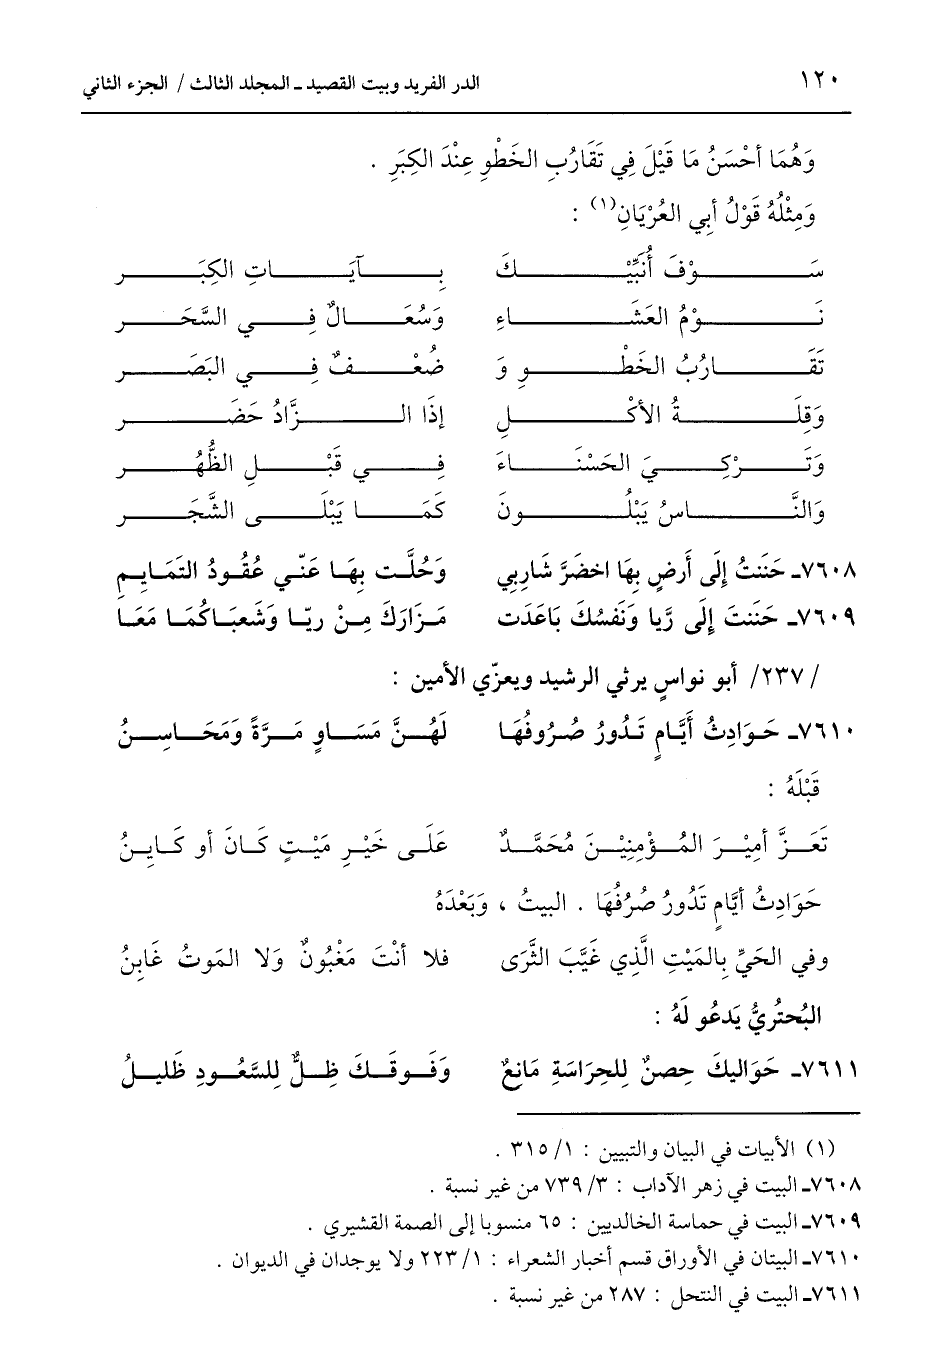 ١٢٠ الدر الفريد وبيت القصيد ـ المجلد الثالث / الجزء الثاني
وَهُمَا أحْسَنُ مَا قَيْلَ فِي تَقَارُبِ الخَطْوِ عِنْدَ الكِبَرِ .
وَمِثْلُهُ قَوْلُ أبي العُرْيَانِ(١) :
سَوْفَ أُنَبِّيْكَ بِآيَاتِ الكِبَر
نَوْمُ العَشَاءِ وَسُعَالٌ فِي السَّحَر
تَقَارُبُ الخَطْوِ وَ ضُعْفٌ فِي البَصَر
وَقِلَةُ الأكْلِ إذَا الزَّادُ حَضَر
وَتَرْكِيَ الحَسْنَاءَ فِي قَبْلِ الظُّهُر
وَالنَّاسُ يَبْلُونَ كَمَا يَبْلَى الشَّجَر
٧٦٠٨ـ حَنَنتُ إِلَى أَرضٍ بِهَا اخضَرَّ شَارِبِي وَحُلَّت بِهَا عَنّي عُقُودُ التمَايِمِ
٧٦٠٩ـ حَنَنتَ إِلَى رَّيا وَنَفسُكَ بَاعَدَت مَزَارَكَ مِنْ ريّا وَشَعبَاكُمَا مَعَا
/ ٢٣٧/ أبو نواسٍ يرثي الرشيد ويعزّي الأمين :
٧٦١٠ـ حَوَادِثُ أَيَّامٍ تَدُورُ صُرُوفُهَا لَهُنَّ مَسَاوٍ مَرَّةً وَمَحَاسِنُ
قَبْلَهُ :
تَعَزَّ أمِيْرَ المُؤْمِنِيْنَ مُحَمَّدٌ عَلَى خَيْرِ مَيْتٍ كَانَ أو كَايِنُ
حَوَادِثُ أيَّامٍ تَدُورُ صُرُفُهَا . البيتُ ، وَبَعْدَهُ
وفي الحَيِّ بِالمَيْتِ الَّذِي غَيَّبَ الثَّرَى فلا أنْتَ مَغْبُونٌ وَلا المَوتُ غَابِنُ
البُحتُرِيُّ يَدعُو لَهُ :
٧٦١١ـ حَوَاليكَ حِصنٌ لِلحِرَاسَةِ مَانِعٌ وَفَوقَكَ ظِلٌّ لِلسَّعُودِ ظَليلُ
(١) الأبيات في البيان والتبيين : ١/ ٣١٥ .
٧٦٠٨ـ البيت في زهر الآداب : ٣/ ٧٣٩ من غير نسبة .
٧٦٠٩ـ البيت في حماسة الخالديين : ٦٥ منسوبا إلى الصمة القشيري .
٧٦١٠ـ البيتان في الأوراق قسم أخبار الشعراء : ١/ ٢٢٣ ولا يوجدان في الديوان .
٧٦١١ـ البيت في النتحل : ٢٨٧ من غير نسبة .